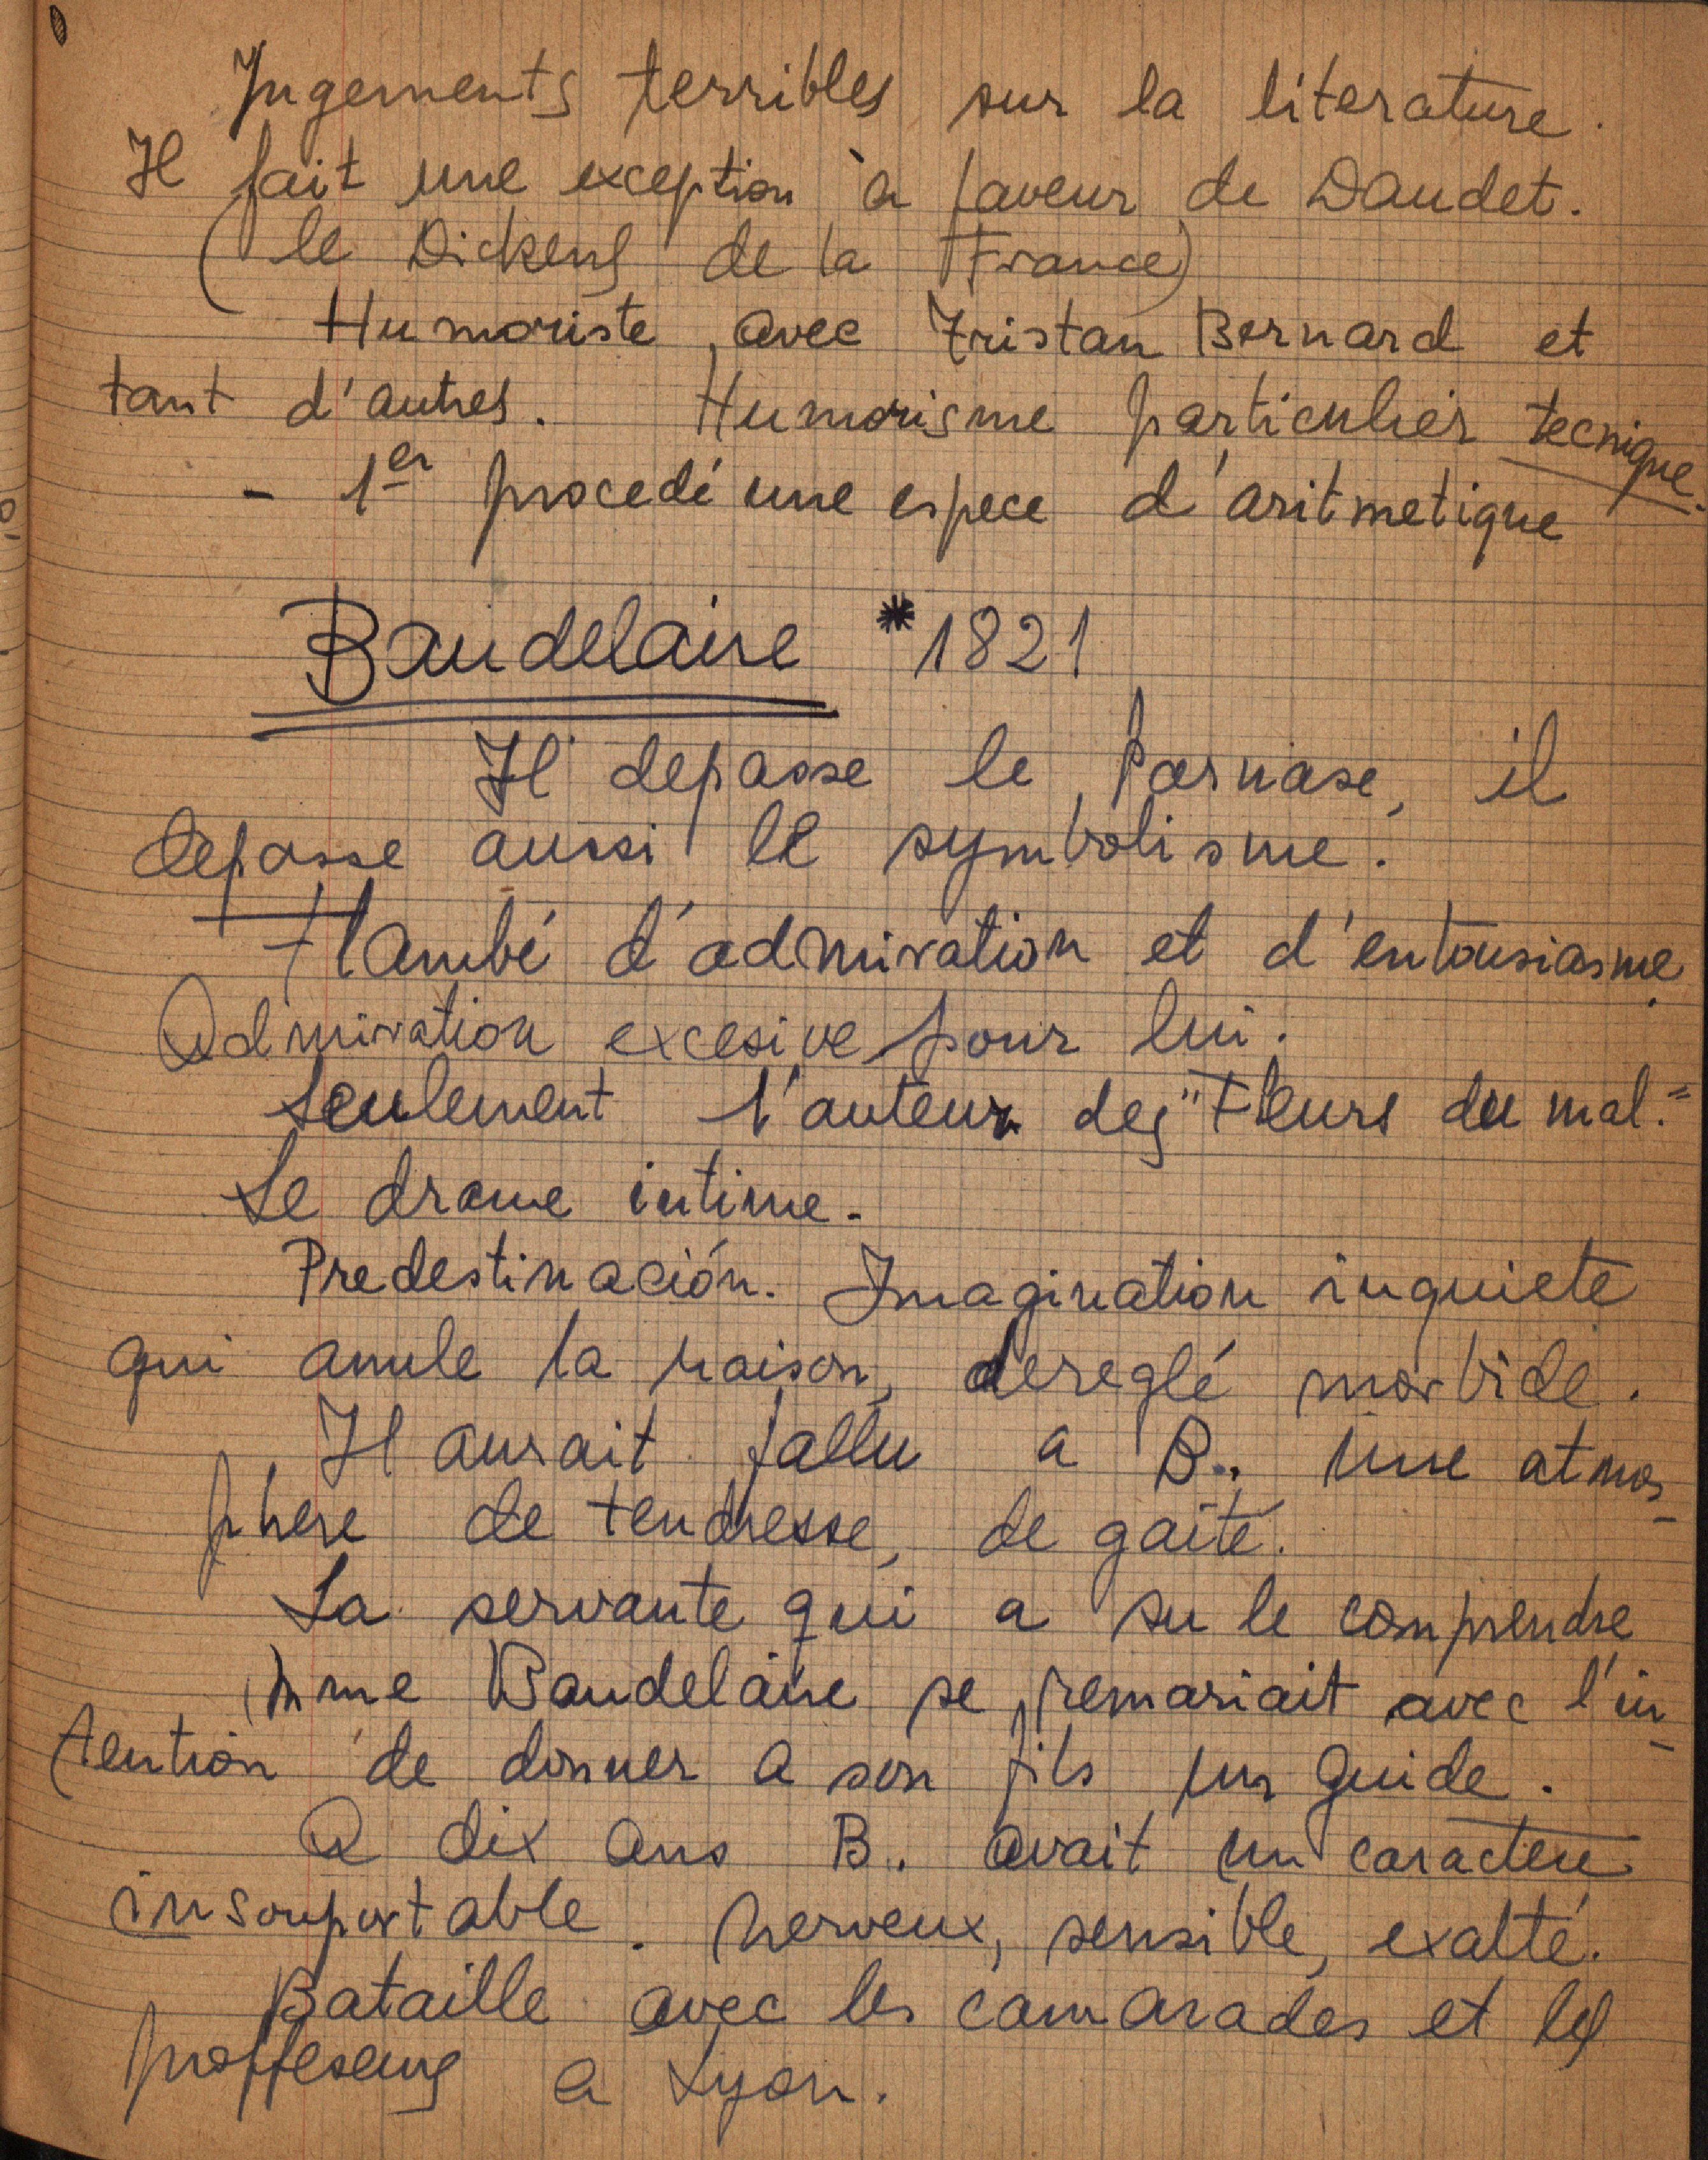 Jugements terribles sur la literature.
Il fait une exception à faveur de Daudet.
(le Dickens de la France)
Humoriste, avec Tristan Bernard et
tant d'autres. Humorisme particulier tecnique.
- 1er procedé une espece d'aritmetique
Baudelaire *1821
Il depasse le Parnase, il
depasse aussi le symbolisme.
Flambé d'admiration et d'entousiasme.
Admiration excesive pour lui.
Seulement l'auteur des "Fleurs du mal."
Le drame intime.
Predestinación. Imagination inquiete
qui anule la raison, dereglé morbide.
Il aurait fallu a B., une atmos-
phere de tendresse, de gaîté.
La servante qui a su le comprendre
Mme Baudelaire se remariait avec l'in-
tention de donner a son fils un guide.
A dix ans B. avait un caractere
insouportable. Nerveux, sensible, exalté.
Bataille avec les camarades et les
proffeseurs a Lyon.